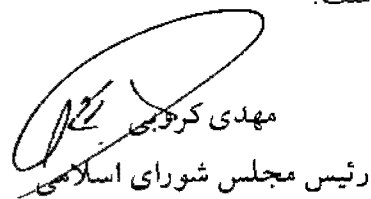 مهدی کروبی
رئیس مجلس شورای اسلامی